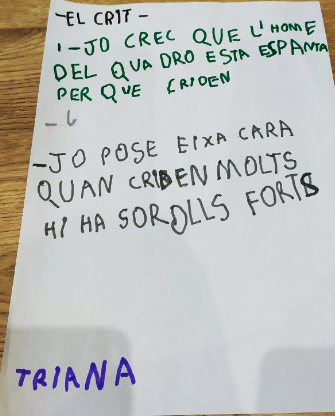 -EL CRIT-
1-JO CREC QUE L'HOME
DEL QUADRO ESTA ESPANTA
PER QUE CRIDEN
-JO POSE EIXA CARA
QUAN CRIDEN MOLTS
HI HA SOROLLS FORTS
TRIANA